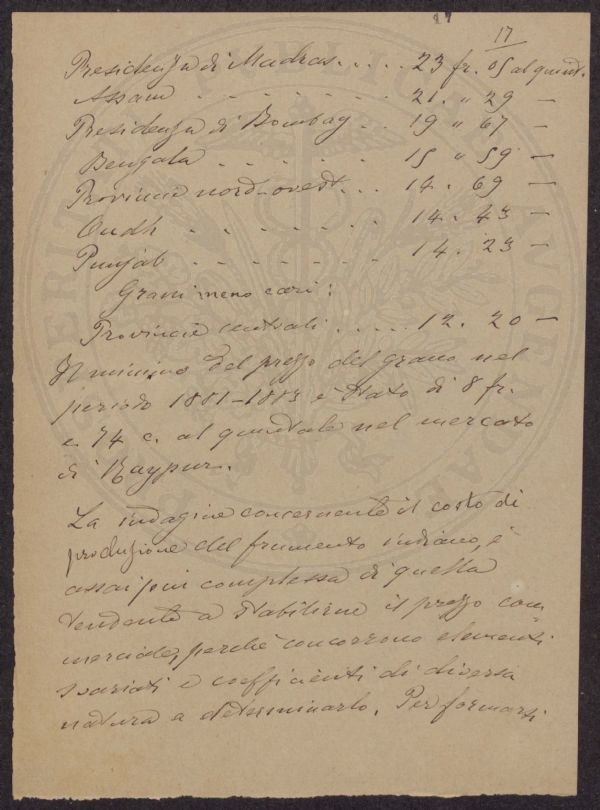 17
17
Presidenza di Madras..... 23 fr. 05 al quint.
Assam - - - - - - - 21. " 29 —
Presidenza di Bombay .. 19 " 67 —
Bengala . . . . . . 15 " 59 —
Provincie nord-ovest... 14. 69 —
Oudh . . . . . . . . 14. 43 —
Punjab - - - - - - - 14. 23 —
Grani meno cari:
Provincie centrali ..... 12. 20 —
Il minimo del prezzo del grano nel
periodo 1881-1883 è stato di 8 fr.
e 74 c. al quintale nel mercato
di Raypur.
La indagine concernente il costo di
produzione del frumento indiano, è
assai più complessa di quella
tendente a stabilirne il prezzo com
merciale, perchè concorrono elementi
svariati e coefficienti di diversa
natura a determinarlo. Per formarsi